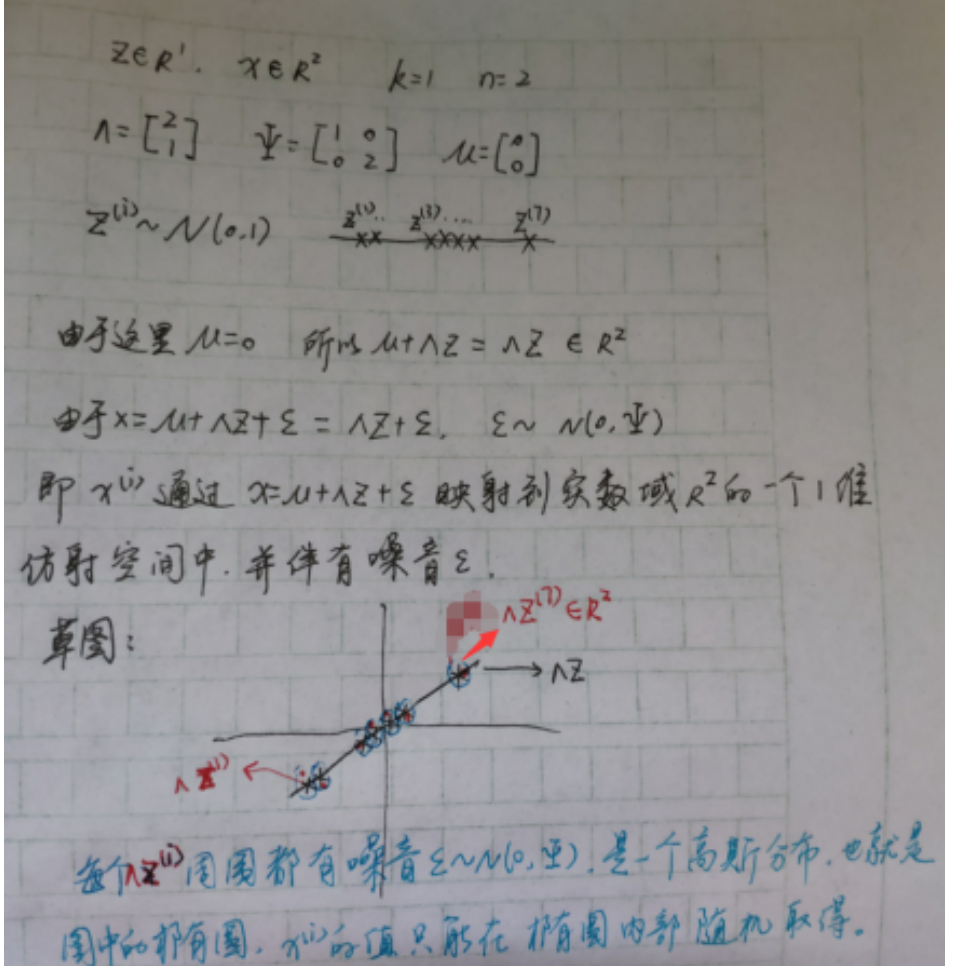 z∈R¹. x∈R² k=1 n=2
Λ=[2 1] Ψ=[1 0 0 2] μ=[0 0]
z⁽ⁱ⁾~N(0,1) z⁽¹⁾.. z⁽³⁾.... z⁽⁷⁾
由于这里μ=0 所以μ+Λz=Λz ∈R²
由于x=μ+Λz+ε=Λz+ε. ε~N(0,Ψ)
即x⁽ⁱ⁾通过x=μ+Λz+ε映射到实数域R²的一个1维
仿射空间中.并伴有噪音ε.
草图:
Λz⁽⁷⁾∈R²
Λz
Λz⁽¹⁾
每个Λz⁽ⁱ⁾周围都有噪音ε~N(0,Ψ).是一个高斯分布.也就是
图中的椭圆.x⁽ⁱ⁾的值只能在椭圆内部随机取得。